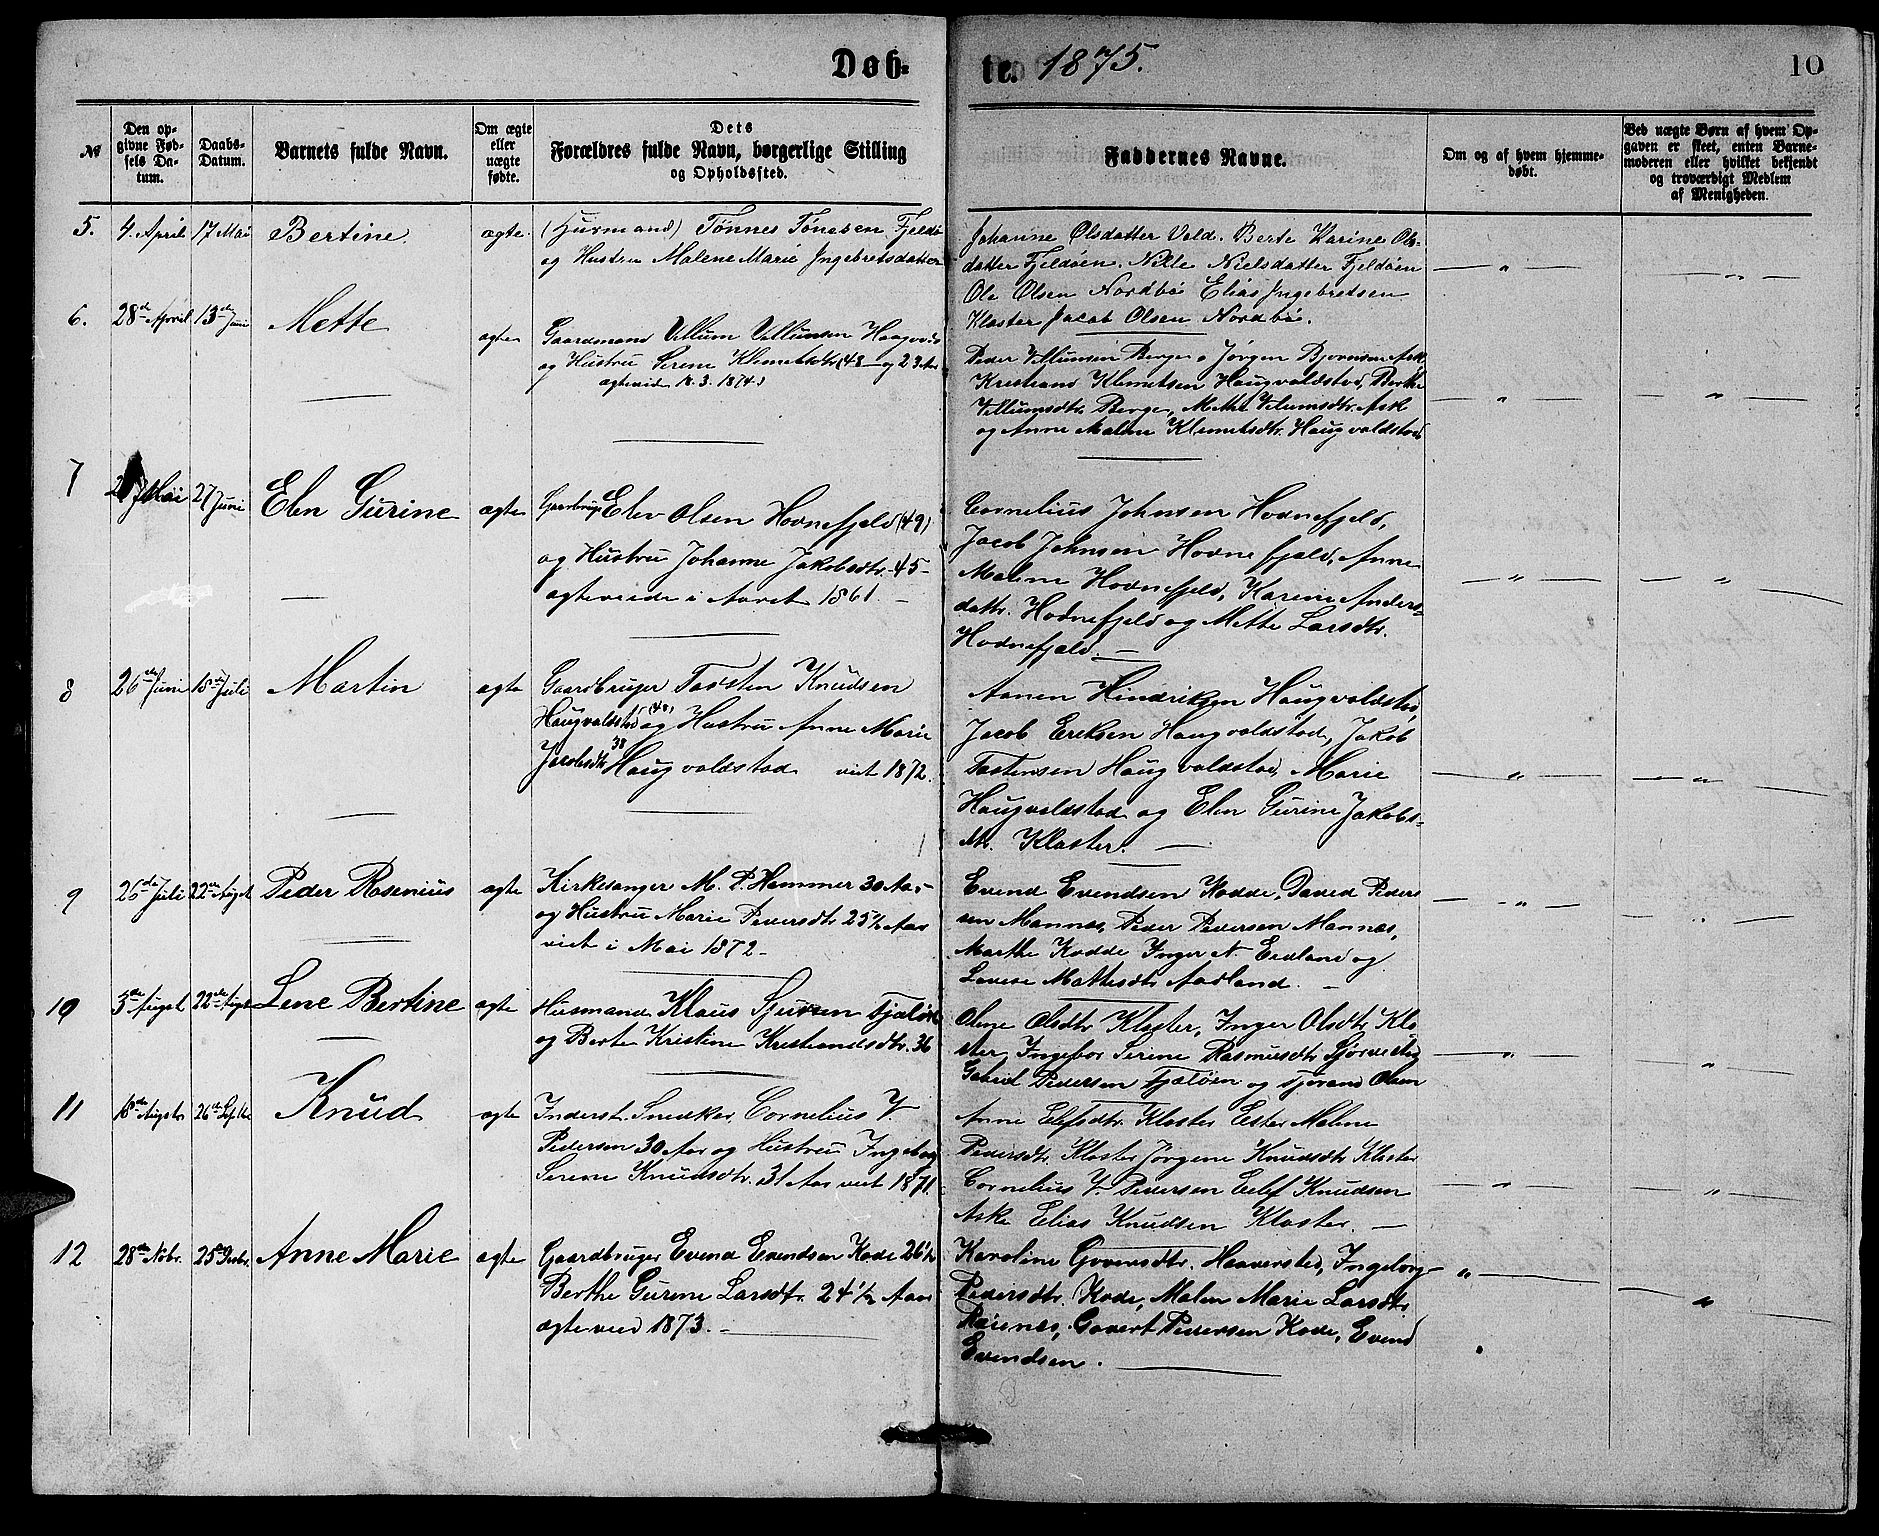 Døb-
te. 1875.
10
№
Den op-
givne Fød-
sels Da-
tum.
Daabs-
Datum.
Barnets fulde Navn.
Om ægte
eller
uægte
fødte.
Dets
Forældres fulde Navn, borgerlige Stilling
og Opholdssted.
Faddernes Navne.
Om og af hvem hjemme-
døbt.
Ved uægte Børn af hvem Op-
gaven er skeet, enten Barne-
moderen eller hvilket bekjendt
og troværdigt Medlem
af Menigheden.
5. 4. April 17 Mai Bertine ægte (Husmand) Tønnes Tønesen Fjeldø
og Hustru Malene Marie Ingebretsdatter
Johanne Olsdatter Vold. Berte Karine Ols-
datter Fjeldøen. Nille Nielsdatter Fjeldøen
Ole Olsen Nordbø Elias Ingebretsen
Kloster Jacob Olsen Nordbø.
6. 28de April 13de Juni Mette ægte Gaardmand Villum Villumsen
og Hustru Serene Klemetsdtr (48 og 23 Aar
ægteviet 18.3.1874)
Peder Villumsen Berge, Jørgen Bjørnsen Ask
Kristians Klemetsen Haugvaldstad, Berthe
Villumsdtr. Berge, Mette Vilumsdtr. Ask
og Anne Malene Klemetsdtr. Haugvaldstad
7 Mai 27 Juni Elen Gurine ægte Gaardbruger Elev Olsen Hodnefjeld (49)
og Hustru Johanne Jakobsdtr. 45 -
ægteviede i Aaret 1861. -
Cornelius Johnsen Hodnefjeld,
Jacob Johnsen Hodnefjeld, Anne
Malene Hodnefjeld, Karene Anders-
dattr. Hodnefjeld og Mette Larsdtr.
Hodnefjeld. -
8 26de Juni 18de Juli Martin ægte Gaardbruger Tosten Knudsen
Haugvaldstad (48) og Hustru Anne Marie
Jacobsdtr 38 Haugvaldstad viet 1872.
Aanen Hindriksen Haugvaldstad,
Jacob Eriksen Haugvaldstad, Jakob
Tostensen Haugvaldstad, Marie
Haugvaldstad og Elen Gurine Jakobs-
dtr. Kloster. -
9 26de Juli 22de August Peder Rosenius ægte Kirkesanger M. P. Hammer 30 Aar
og Hustru Marie Pedersdtr. 25½ Aar
viet i Mai 1872. -
Evend Evendsen Kodde, David Peder-
sen Mannes, Peder Pedersen Mannes,
Marthe Kodde, Inger N. Eidland og
Lovise Mathisdtr Aadland. -
10 5te August 22de August Lene Bertine ægte Husmand Klaus Sjursen Fjæløen
og Berte Kristine Kristiansdtr. 36
Oline Olsdtr Kloster, Inger Olsdtr. Klo
ster, Ingebor Serine Rasmusdtr
Gabriel Pedersen Fjæløen og Olsen
11 18de August 26de Septbr Knud ægte Inderst. Snedker, Cornelius V.
Pedersen 30 Aar og Hustru Ingeborg
Serene Knudsdtr. 31 Aar viet 1871.
Anne Elefsdtr. Kloster Ester Malene
Pedersdtr. Kloster Jørgene Knudsdtr Kloster
Cornelius V. Pedersen Elef Knudsen
Aske Elias Knudsen Kloster. -
12 28de Nobr. 25de Decbr. Anne Marie ægte Gaardbruger Evend Evendsen Kode 26½
Berthe Gurene Larsdtr. 24½ Aar
ægteviet 1873. -
Karoline Goversdtr. Haaversted, Ingeborg
Pedersdtr. Kode, Malen Marie Larsdtr
Govert Pedersen Kode, Evend
Evendsen.